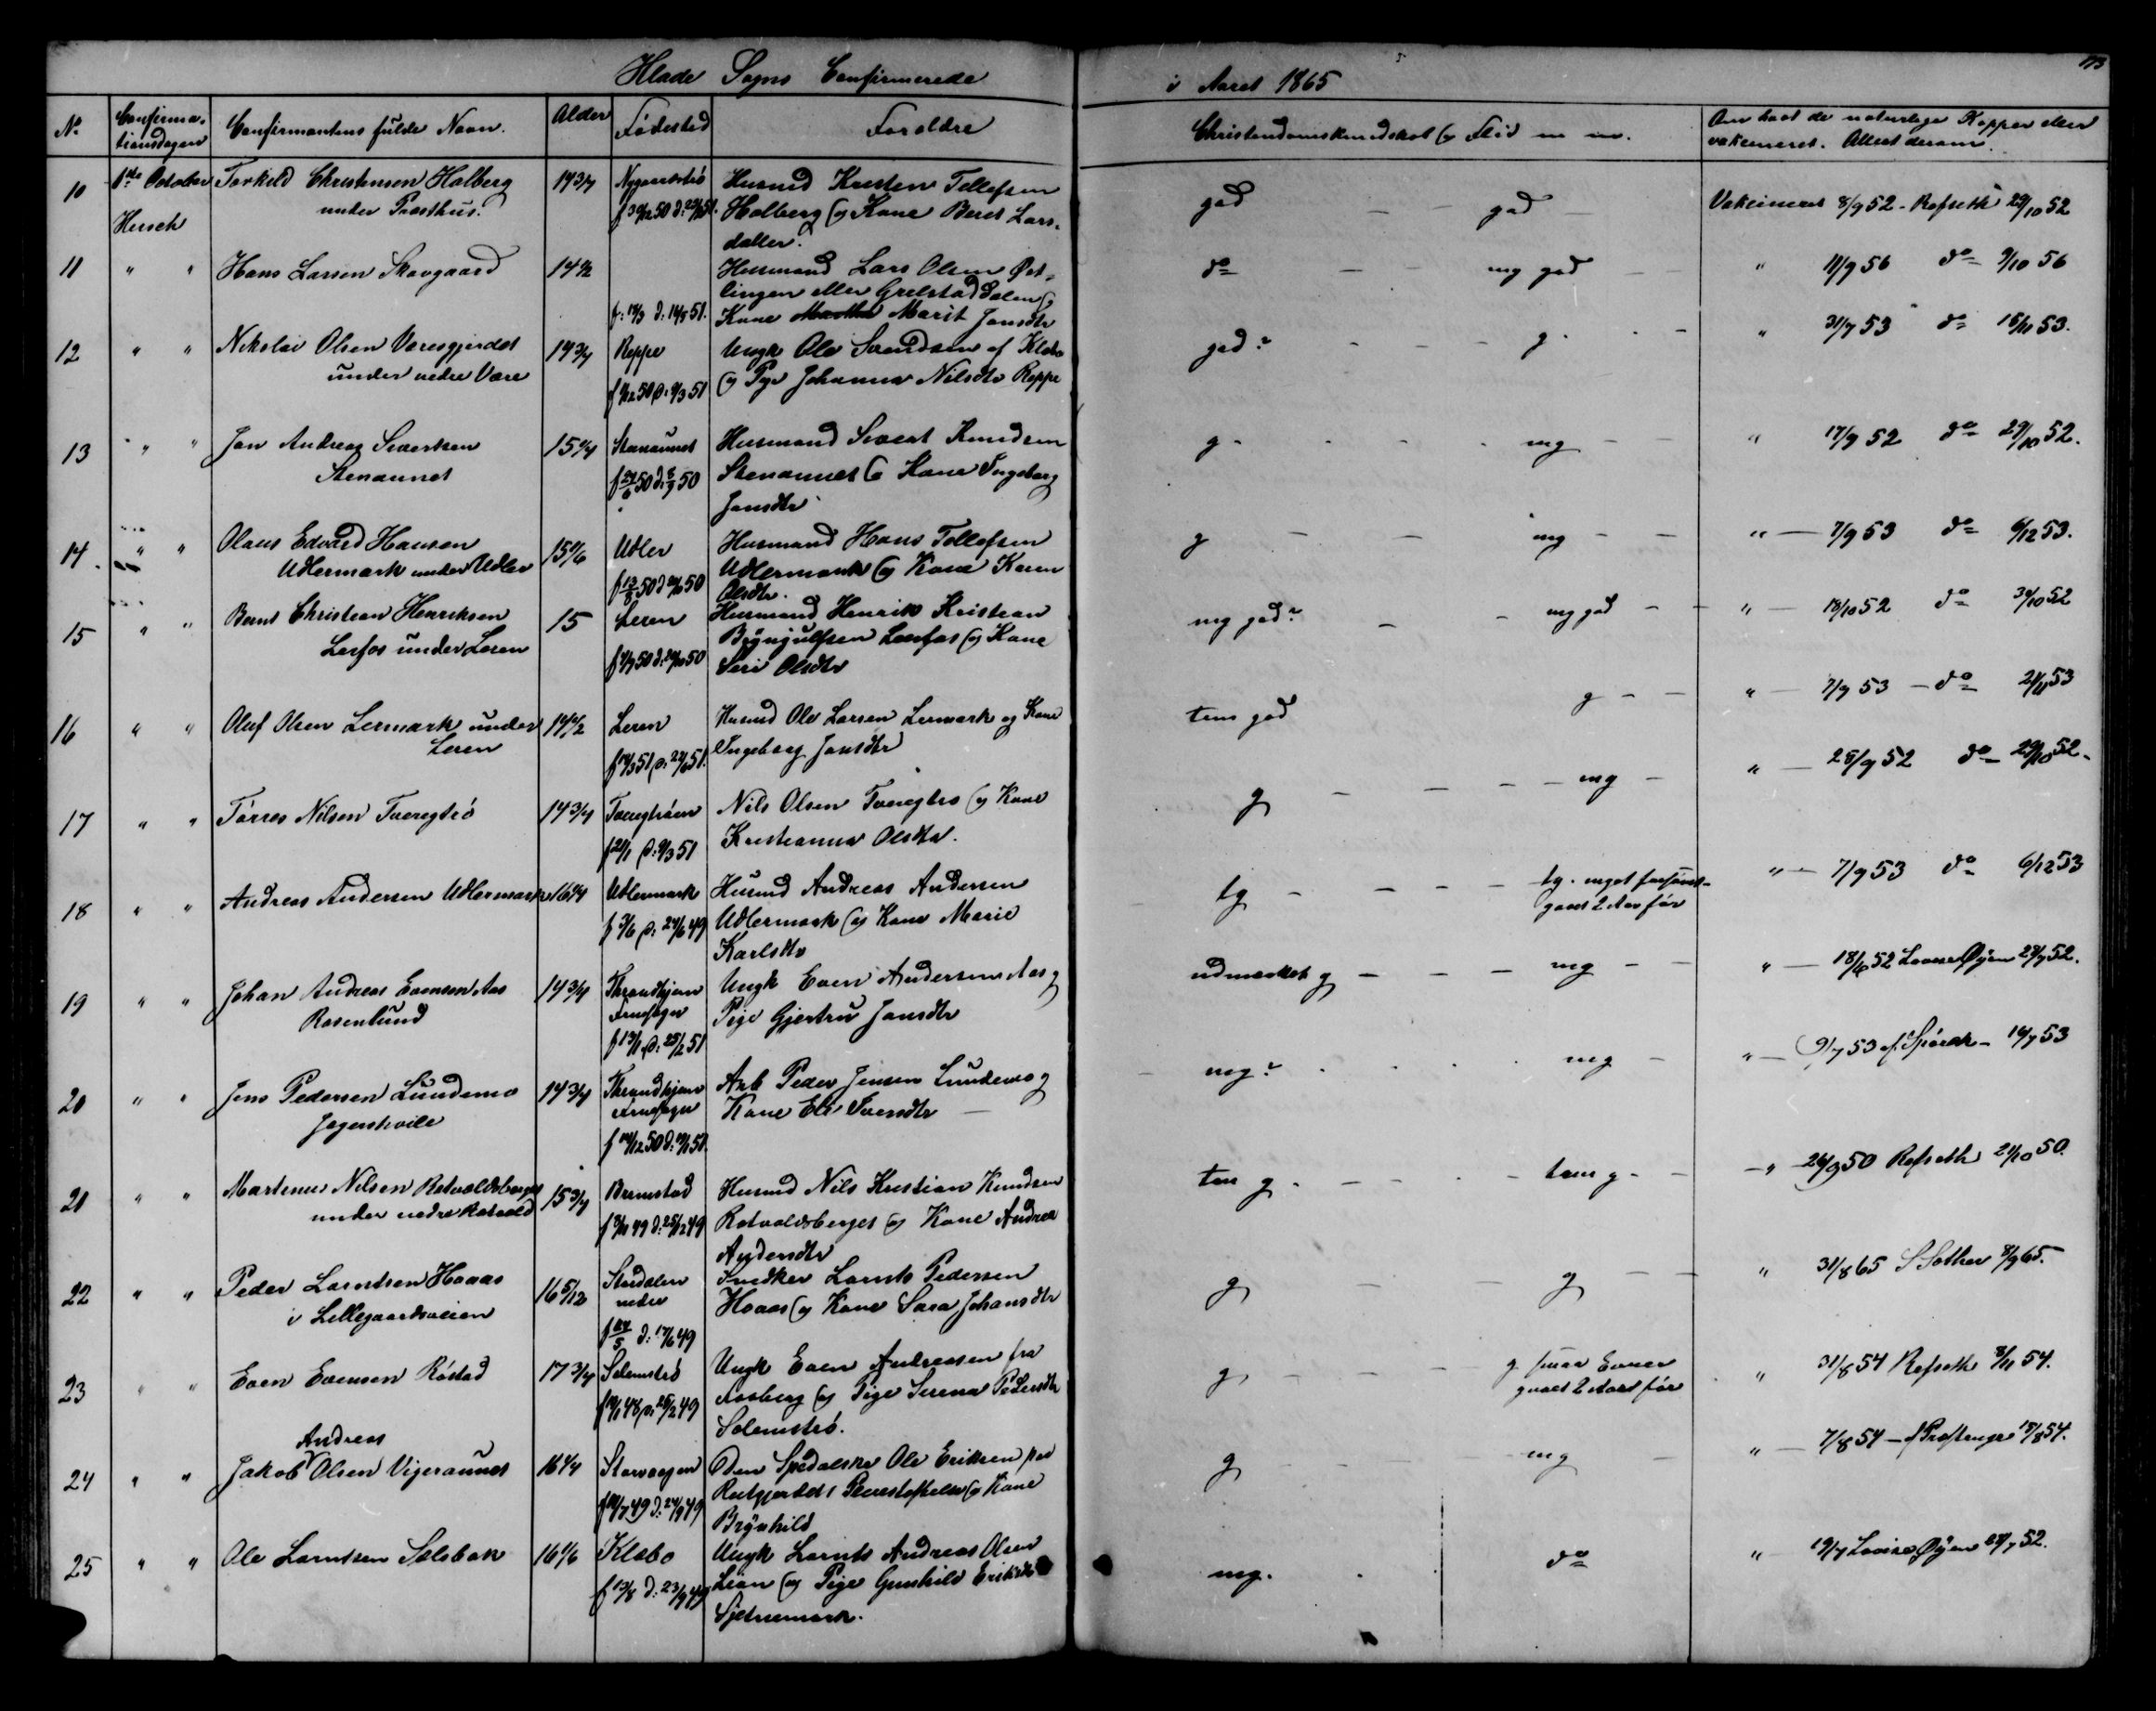 Hlade Sogns Confirmerede
i Aaret 1865
173
No
Confirma-
tionsdagen
Confirmantens fulde Navn.
Alder
Fødested
Foraldre
Christendomskundskab og Flid m m.
Om havt de naturlige Kopper eller
vakcineret. Attest derom.
10
1ste October
Hersch
Torkild Christensen Halberg
under Presthus.
14 3/4
f 30/12 50
Husmd Kristen Tellefsen
Halberg og Kone Beret Lars-
datter.
god — — god
Vakcineret 8/9 52 - Refseth 29/10 52
11
" "
Hans Larsen Skovgaard
14 1/2
f: 14/3 d: 14/5 51.
Husmand Lars Olsen Øst-
lingen eller Grelstaddalen og
Kone Marit Jansdtr
do — — mg god —
" 11/9 56 do 9/10 56
12
" "
Nikolai Olsen Væresgjerdet
under nedre Være
14 3/4
Reppe
Ungk Ole Svendsen af Klæbo
og Pge Johanna Nilsdtr Reppe
god? - - - g - -
" 31/7 53 do 15/11 53.
13
" "
Jan Andreas Sivertsen
Stenaunet
15 1/4
Stenaunet
f 24/6 50 d: 8/9 50
Husmand Sivert Knudsen
Stenaunet og Kone Ingeborg
Jansdtr
g - - - mg - -
" 17/9 52 do 29/10 52.
14.
" "
Olaus Edvard Hansen
Udlermark under Udler
15 1/6
Udler
f 13/8 50
Husmand Hans Tollefsen
Udlermark og Kone Karen
Olsdtr.
g - - - mg - -
" — 7/9 53 do 6/12 53.
15
" "
Bernt Christian Henriksen
Lerfos under Leren
15
Leren
Husmand Henrik Kristian
Brynjulfsen Lerfos og Kone
Seri Olsdtr
mg god? - - mg god - -
" — 18/10 52 do 30/10 52
16
" "
Oluf Olsen Lermark under
Leren
14 1/2
Leren
Husmd Ole Larsen Lermark og Kone
Ingeborg Jansdtr
tem god g - -
" — 7/9 53 - do 21/11 53
17
" "
Tørres Nilsen Tveregtrø
14 3/4
Nils Olsen Tveregtrø og Kone
Kristianna Olsdtr.
g - - - - mg -
" — 25/9 52 do 29/10 52.
18
" "
Andreas Andersen Udlermark
16 1/4
Udlermark
f 3/6 d: 24/6 49
Husmd Andreas Andersen
Udlermark og Kone Marie
Karlsdtr
tg - - - - tg. meget forsømt
gaaet 2 Aar før
" — 7/9 53 do 6/12 53
19
" "
Johan Andreas Evensen Aas
Rosenlund
14 3/4
Throndhjem
f 13/1 d: 25/2 51
Ungk Even Andersen Aas og
Pige Gjertru Jansdtr
udmærket g - - - mg - -
" — 18/6 52 Lovise Øyen 28/7 52.
20
" "
Jens Pedersen Lundemo
Jegershvile
14 3/4
Throndhjem
Arb Peder Jensen Lundemo og
Kone Eli Svendtr —
mg? - - - mg -
" — 9/7 53 14/7 53
21
" "
Martinus Nilsen Rotvoldsberget
under nedre Rotvold
15 3/4
Bromstad
Husmd Nils Kristian Knudsen
Rotvoldsberget og Kone Andrea
Andersdtr
tem g - - - - tem g - -
- " 26/9 50 Refseth 21/10 50.
22
" "
Peder Larntsen Hoaas
i Lillegaardsveien
16 5/12
Stadalen
nedre
d: 17/6 49
Snedker Larnts Pedersen
Hoaas og Kone Sara Johansdtr
g - - - g - -
" 31/8 65 8/9 65.
23
" "
Even Evensen Røstad
17 3/4
Solemstrø
Ungk Even Andreasen fra
Aasberg og Pige Serena Pedersdtr
Solemstrø.
g, - - - g. smaa Evner
gaaet 2 Aar før
" 31/8 54 Refseth 8/11 54.
24
" "
Andreas
Jakob Olsen Vigeraunet
16 1/4
Den Spedalske Ole Eriksen paa
Reitgjerdets Pleiestiftelse og Kone
Brynhild
g - - - mg -
" — 7/8 54 15/8 54.
25
" "
Ole Larntsen Solsbak
16 1/6
Klæbo
f 13/8 d: 23/9 49
Ungk Larnts Andreas Olsen
Leian og Pige Gunhild Eriksdtr
Sjetnemark.
mg. - - do
" — 19/7 Lovise Øyen